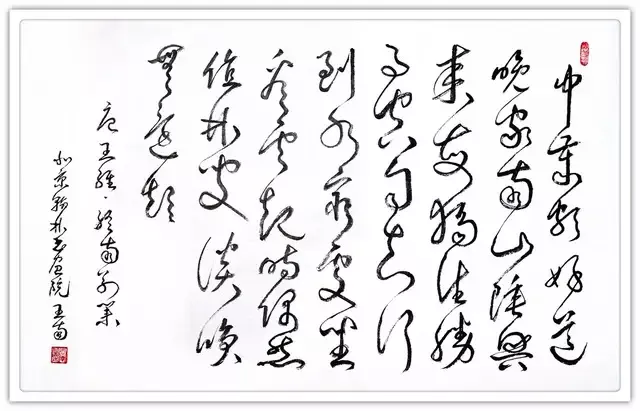 中歲頗好道
晚家南山陲興
來每獨往勝
事空自知行
到水窮處坐
看雲起時偶然
值林叟談笑
無還期
唐王維·終南别業
北京翰林書畫院王南